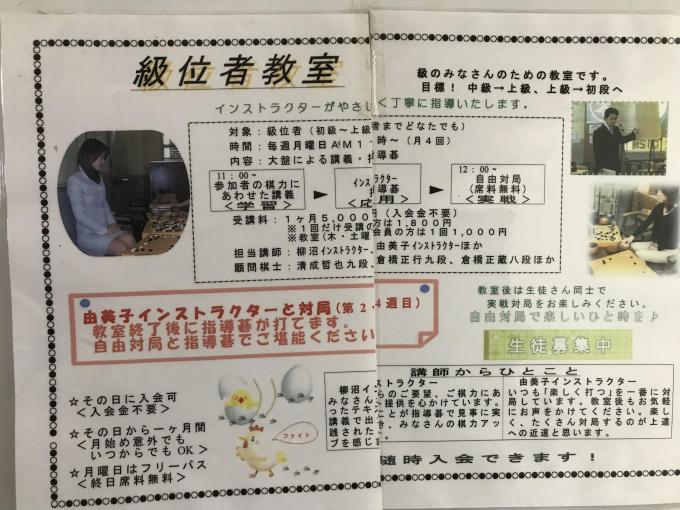 級位者教室
級のみなさんのための教室です。
目標! 中級→上級、上級→初段へ
インストラクターがやさし く丁寧に指導いたします。
対象:級位者(初級〜上級 者までどなたでも)
時間:毎週月曜日AM1 時〜(月4回)
内容:大盤による講義・ 指導碁
11:00〜
参加者の棋力に
あわせた講義
<学習>
インス トラクター
導碁
<応 用>
12:00〜
自由対局
(席料無料)
<実戦>
受講料:1ヶ月5,000 円(入会金不要)
※1回だけ受講の 方は1,800円
※教室(木・土曜 会員の方は1回1,000円
担当講師:柳沼インストラクター、 由美子インストラクターほか
顧問棋士:清成哲也九段、 倉橋正行九段、倉橋正蔵八段ほか
由美子インストラクターと対局(第2 4週目)
教室終了後に指導碁が打てます。
自由対局と指導碁でご堪能ください
教室後は生徒さん同士で
実戦対局をお楽しみください。
自由対局で楽しいひと時を♪
生徒募集中
☆その日に入会可
<入会金不要>
☆その日から一ヶ月間
<月始め意外でも
いつからでもOK>
☆月曜日はフリーパス
<終日席料無料>
ファイト
講師からひとこと
柳沼イン ストラクター
みなさん からのご要望、ご棋力にあ
ったテキ 提供を心かけています。
講義で出 ことが指導碁で見事に実
践された き、みなさんの棋力アッ
プを感じ
由美子インストラクター
いつも「楽しく打つ」を一番に対
局しています。教室後もお気軽
にお声をかけてください。楽し
く、たくさん対局するのが上達
への近道と思います。
随時入会できます!